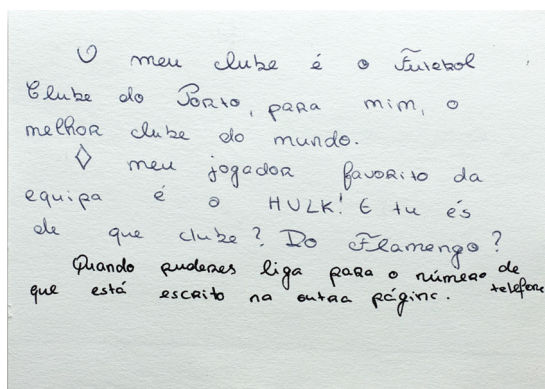 O meu clube é o Futebol
Clube do Porto, para mim, o
melhor clube do mundo.
O meu jogador favorito da
equipa é o HULK! E tu és
de que clube? Do Flamengo?
Quando puderes liga para o número de
que está escrito na outra página. telefone